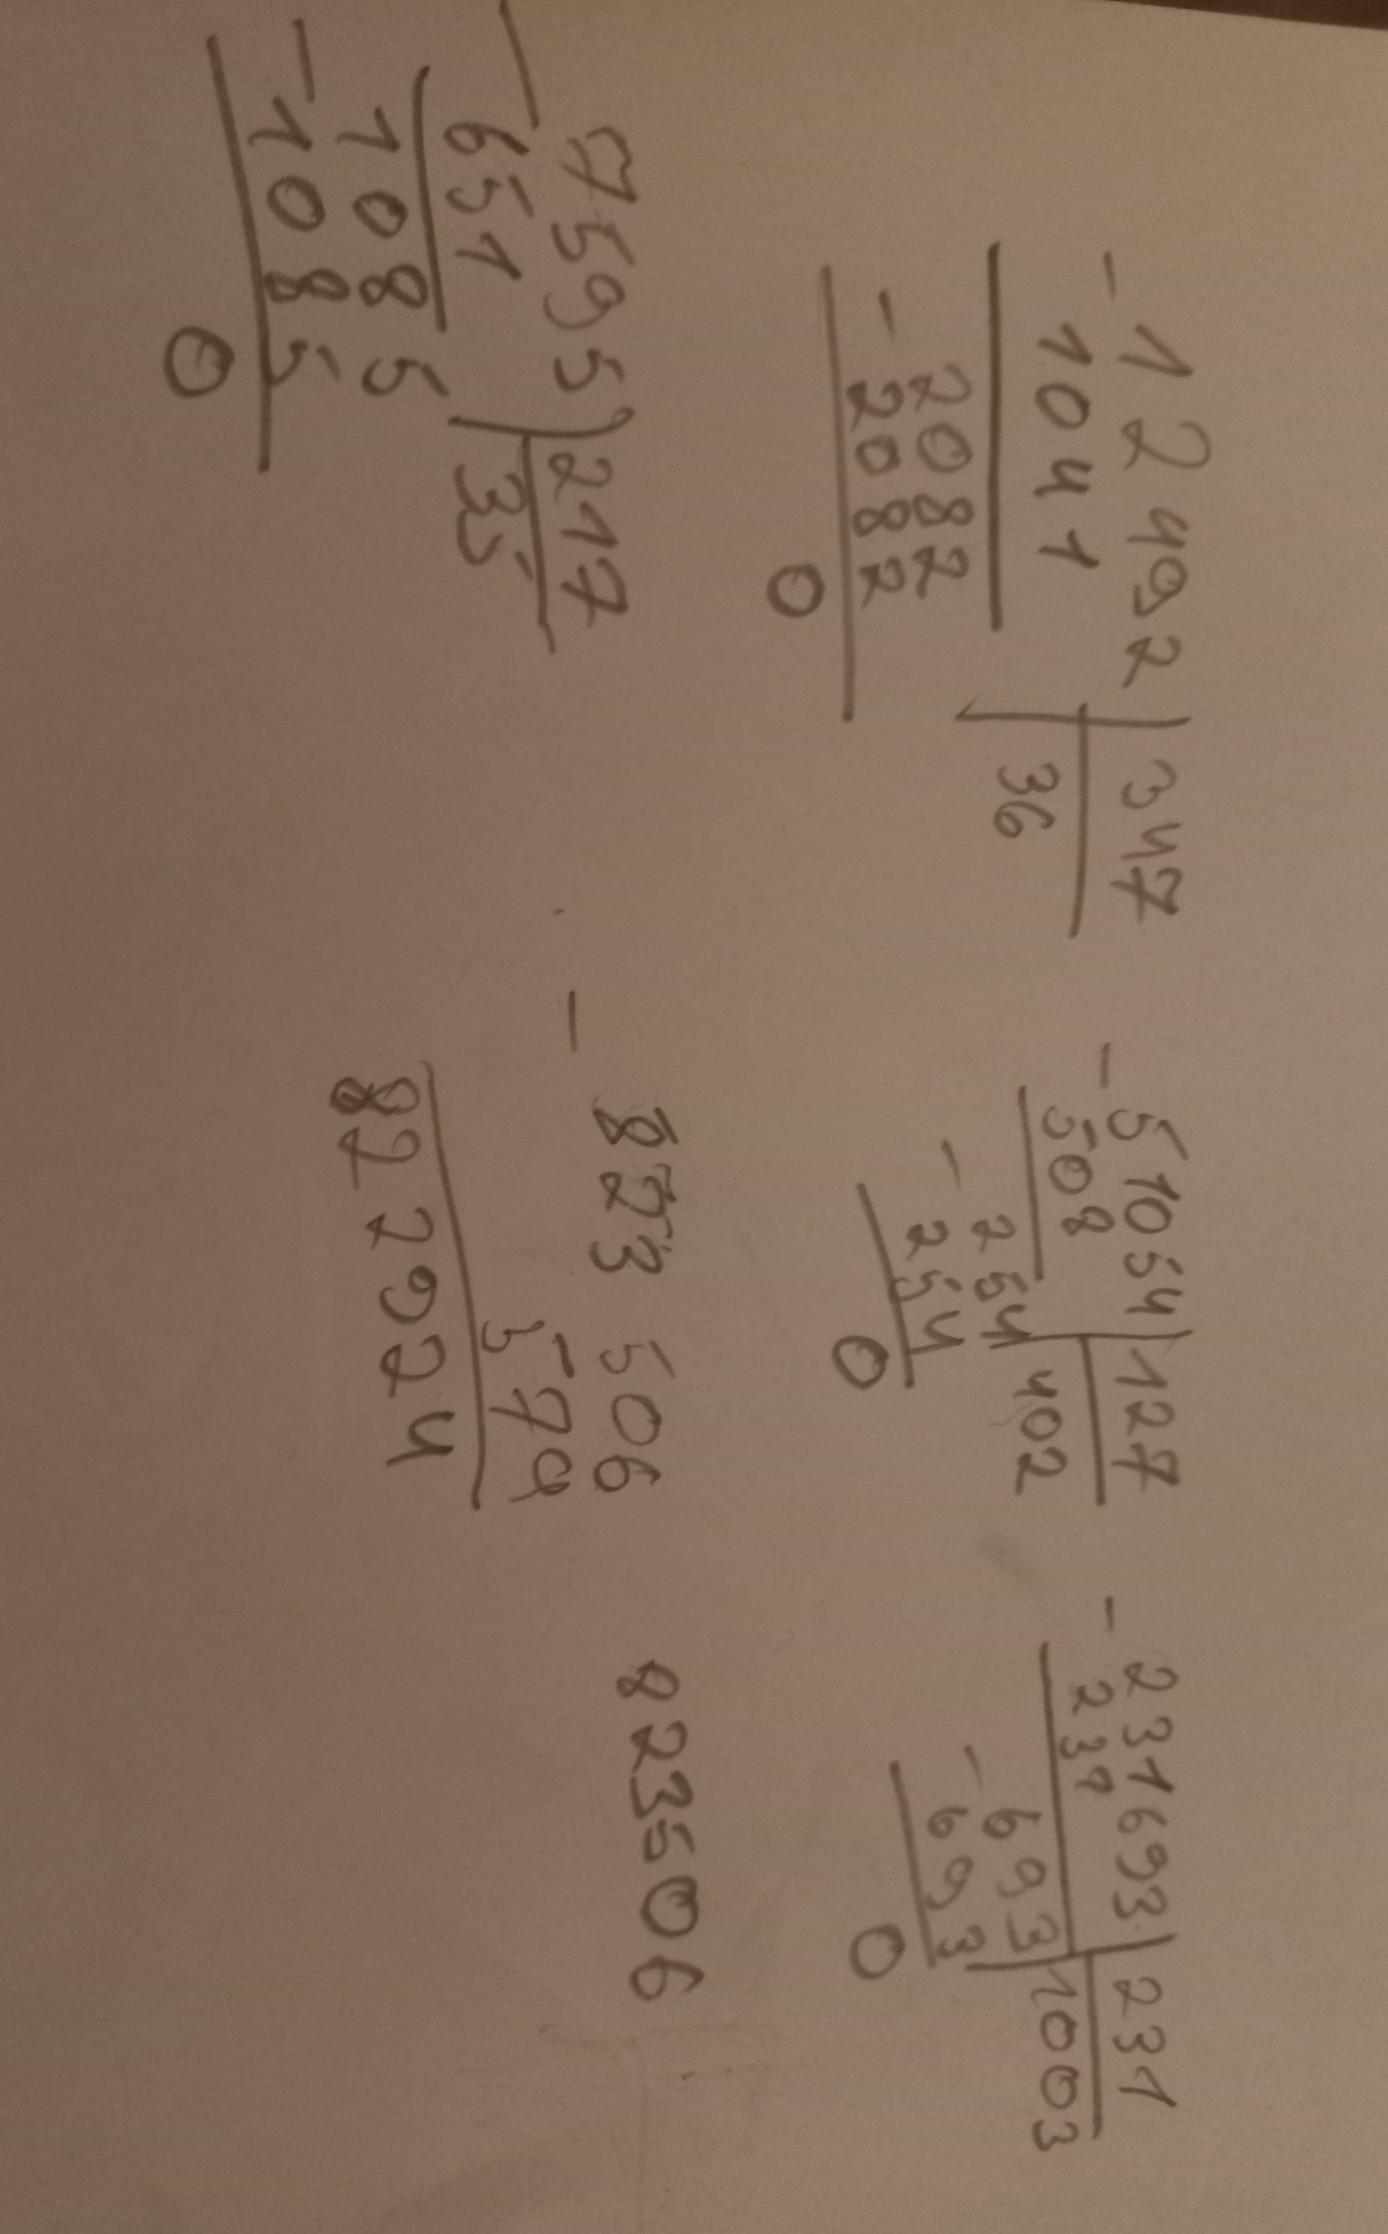 - 12492 | 347
1041 | 36
- 2082
2082
0
- 51054 | 127
508 | 402
- 254
254
0
- 231693 | 231
231 | 1003
- 693
693
0
- 7595 | 217
651 | 35
- 1085
1085
0
- 823 506
579
822924
823506